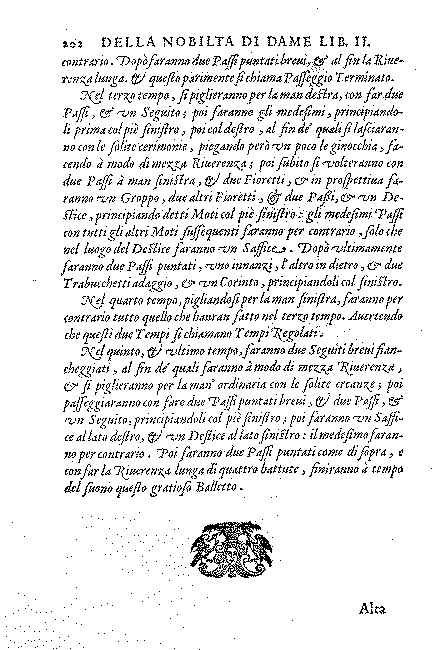 202 DELLA NOBILTA DI DAME LIB. II.
contrario. Dopò faranno due Paſſi puntati breui, & al fin la Riue-
renza lunga. & queſto parimente ſi chiama Paſſeggio Terminato.
Nel terzo tempo, ſi piglieranno per la man deſtra, con far due
Paſſi, & vn Seguito; poi faranno gli medeſimi, principiando-
li prima col piè ſiniſtro, poi col deſtro, al fin de' quali ſi laſciaran-
no con le ſolite cerimonie, piegando però vn poco le ginocchia, fa-
cendo à modo di mezza Riuerenza; poi ſubito ſi volteranno con
due Paſſi à man ſiniſtra, & due Fioretti, & in proſpettiua fa-
ranno vn Groppo, due altri Fioretti, & due Paſſi, & vn De-
ſtice, principiando detti Moti col piè ſiniſtro: gli medeſimi Paſſi
con tutti gli altri Moti ſuſſequenti faranno per contrario, ſolo che
nel luogo del Deſtice faranno vn Saffice. Dopò vltimamente
faranno due Paſſi puntati, vno innanzi, l'altro in dietro, & due
Trabucchetti adaggio, & vn Corinto, principiandoli col ſiniſtro.
Nel quarto tempo, pigliandoſi per la man ſiniſtra, faranno per
contrario tutto quello che hauran fatto nel terzo tempo. Auertendo
che queſti due Tempi ſi chiamano Tempi Regolati.
Nel quinto, & vltimo tempo, faranno due Seguiti breui fian-
cheggiati, al fin de' quali faranno à modo di mezza Riuerenza,
& ſi piglieranno per la man' ordinaria con le ſolite creanze; poi
paſſeggiaranno con fare due Paſſi puntati breui, & due Paſſi, &
vn Seguito, principiandoli col piè ſiniſtro; poi faranno vn Saffi-
ce al lato deſtro, & vn Deſtice al lato ſiniſtro: il medeſimo faran-
no per contrario. Poi faranno due Paſſi puntati come di ſopra, e
con far la Riuerenza lunga di quattro battute, finiranno à tempo
del ſuono queſto gratioſo Balletto.
Alta